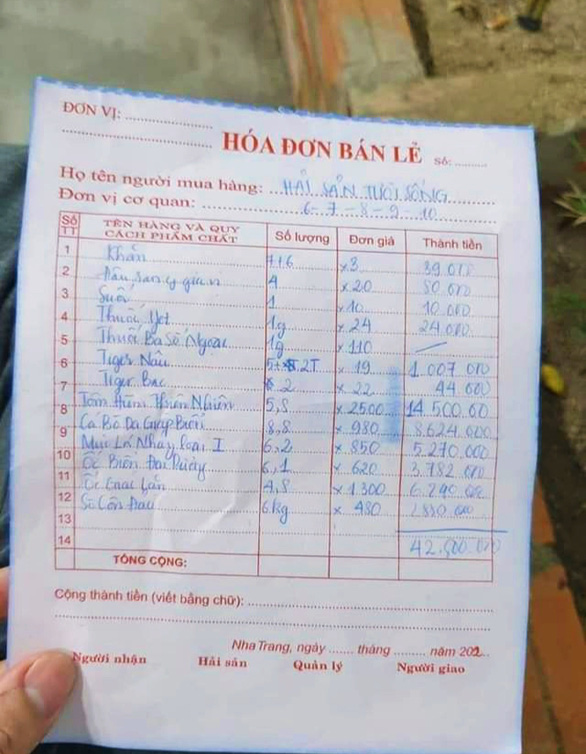 ĐƠN VỊ: ....................
..............................
HÓA ĐƠN BÁN LẺ Số: .........
Họ tên người mua hàng: HẢI SẢN TƯƠI SỐNG
Đơn vị cơ quan: 6-7-8-9-10
Số TT TÊN HÀNG VÀ QUY CÁCH PHẨM CHẤT Số lượng Đơn giá Thành tiền
1 Khăn 7+6 x 3 39.000
2 4 x 20 80.000
3 Suối 1 x 10 10.000
4 Thuốc 1g x 24 24.000
5 Thuốc Ba Số Ngoại 1g x 110
6 Tiger Nâu 2T x 19 1.007 000
7 Tiger Bạc 2 x 22 44 000
8 Tôm Hùm Thiên Nhiên 5,8 x 2500 14.500.00
9 Cá Bò Da Giáp Biển 8,8 x 980 8.624.000
10 Mực Lá Nháy loại I 6,2 x 850 5.270.000
11 Ốc Biển Đại Dương 6,1 x 620 3.782.000
12 Ốc Gai Lăn 4,8 x 1.300 6.240.000
13 Sò Côn Đảo 6kg x 480 2.880.000
14 42.500.000
TỔNG CỘNG:
Cộng thành tiền (viết bằng chữ): ..............................
..............................
Nha Trang, ngày ....... tháng ......... năm 202...
Người nhận Hải sản Quản lý Người giao